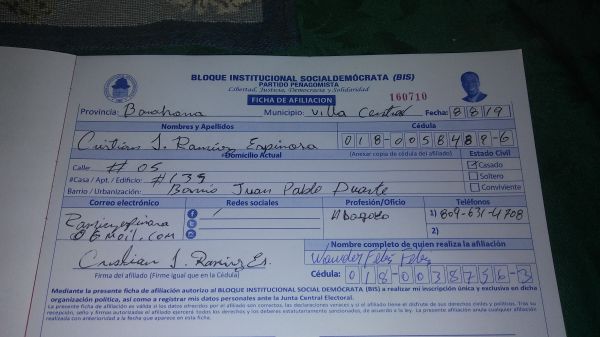 BLOQUE INSTITUCIONAL SOCIALDEMÓCRATA (BIS)
PARTIDO PEÑAGOMISTA
Libertad, Justicia, Democracia y Solidaridad
FICHA DE AFILIACION 160710
Provincia: Barahona Municipio: Villa Central Fecha: 8 8 19
Nombres y Apellidos Cédula
Cristian J. Ramirez Espinosa 018-0058489-6
Domicilio Actual (Anexar copia de cédula del afiliado) Estado Civil
Calle: # 05 Casado
#Casa / Apt. / Edificio: #139 Soltero
Barrio / Urbanización: Barrio Juan Pablo Duarte Conviviente
Correo electrónico Redes sociales Profesión/Oficio Teléfonos
Abogado 1) 809-631-4708
@Gmail.com 2)
Nombre completo de quien realiza la afiliación
Cristian J. Ramirez Es. Wander Feliz Feliz
Firma del afiliado (Firme igual que en la Cédula) Cédula: 018-0038756-3
Mediante la presente ficha de afiliación autorizo al BLOQUE INSTITUCIONAL SOCIALDEMÓCRATA (BIS) a realizar mi inscripción única y exclusiva en dicha
organización política, así como a registrar mis datos personales ante la Junta Central Electoral.
La presente ficha de afiliación es válida si los datos ofrecidos por el afiliado son correctos, las declaraciones veraces y si el afiliado tiene el disfrute de sus derechos civiles y políticos. Tras su
recepción, sello y firmas autorizadas el afiliado ejercerá todos los derechos y los deberes estatutariamente sancionados, de acuerdo a la ley. La presente afiliación anula cualquier afiliación
realizada con anterioridad a la fecha que aparece en esta ficha.